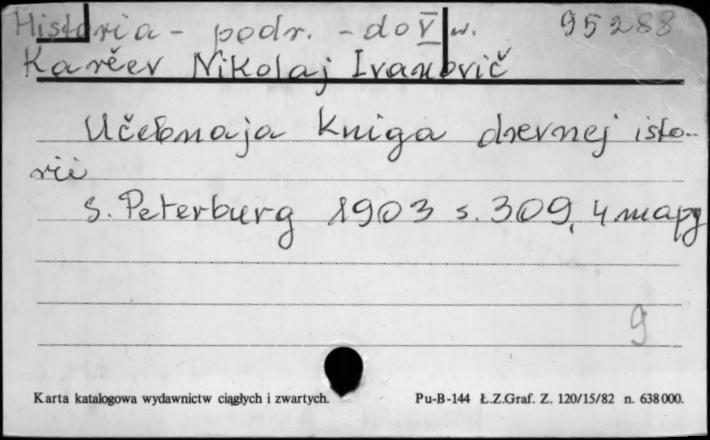 Historia - podr. - do V w. 95288
Karěev Nikolaj Ivanovič
Učebnaja kniga drevnej isto-
rii
S. Peterburg 1903 s. 309, 4 mapy
9
Karta katalogowa wydawnictw ciągłych i zwartych. Pu-B-144 Ł.Z.Graf. Z. 120/15/82 n. 638000.